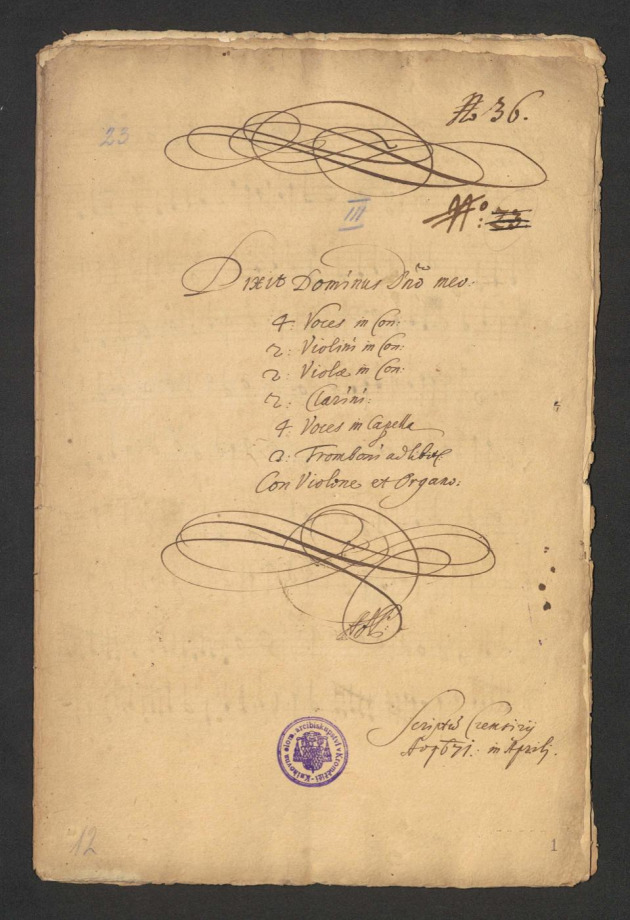 No 36.
23
III
No: 23
Dixit Dominus Dnō meo:
4: Voces in Con:
2: Violini in Con:
2: Violæ in Con:
2: Clarini:
4: Voces in Capella
2: Tromboni ad libit
Con Violone et Organo:
Scriptū Cremsirij
Ao 1671. in Aprili.
Knihovna olom. arcibiskupství v Kroměříži
12
1